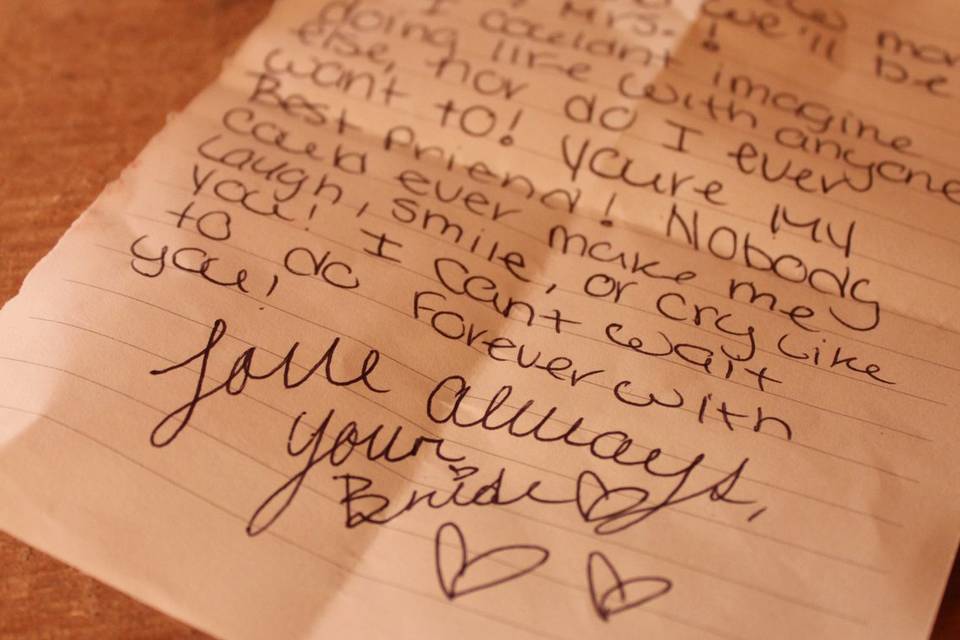 Mrs.! we'll be
I couldnt imagine
doing life with anyone
else, nor do I ever
want to! Youre My
Best Friend! Nobody
could ever make me
Laugh, smile, or cry Like
You! I can't wait
to do Forever with
you!
Love Always,
your
Bride